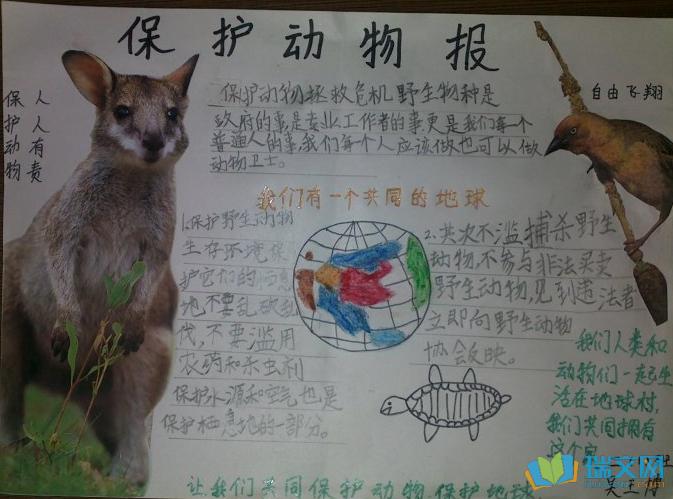 保护动物报
保护动物
人人有责
自由飞翔
保护动物拯救危机野生物种是
政府的事,是专业工作者的事更是我们每一个
普通人的事,我们每个人应该做也可以做
动物卫士。
我们有一个共同的地球
1.保护野生动物
生存环境保
护它们的栖息
地不要乱砍乱
伐,不要滥用
农药和杀虫剂
保护水源和空气也是
保护栖息地的一部分。
2.坚决不滥捕杀野生
动物,不参与非法买卖
野生动物,见到违法者
立即向野生动物
协会反映。
我们人类和
动物们一起生
活在地球村,
我们共同拥有
这个家
让我们共同保护动物.保护地球
瑞文网